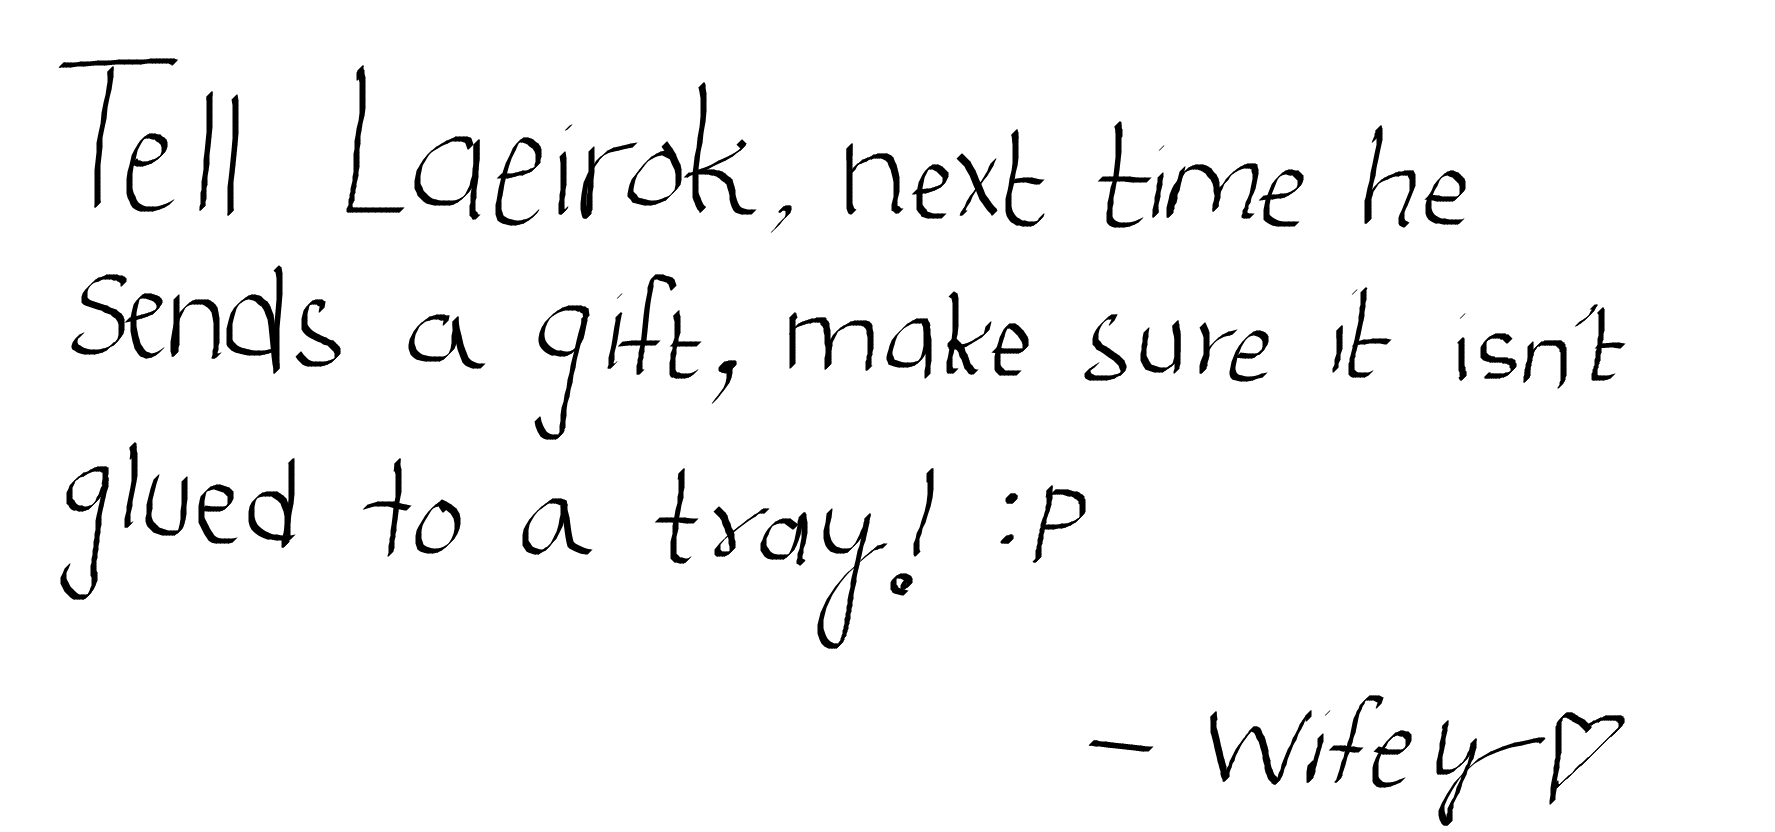 Tell Laeirok, next time he
sends a gift, make sure it isn't
glued to a tray! :P
- Wifey ♡